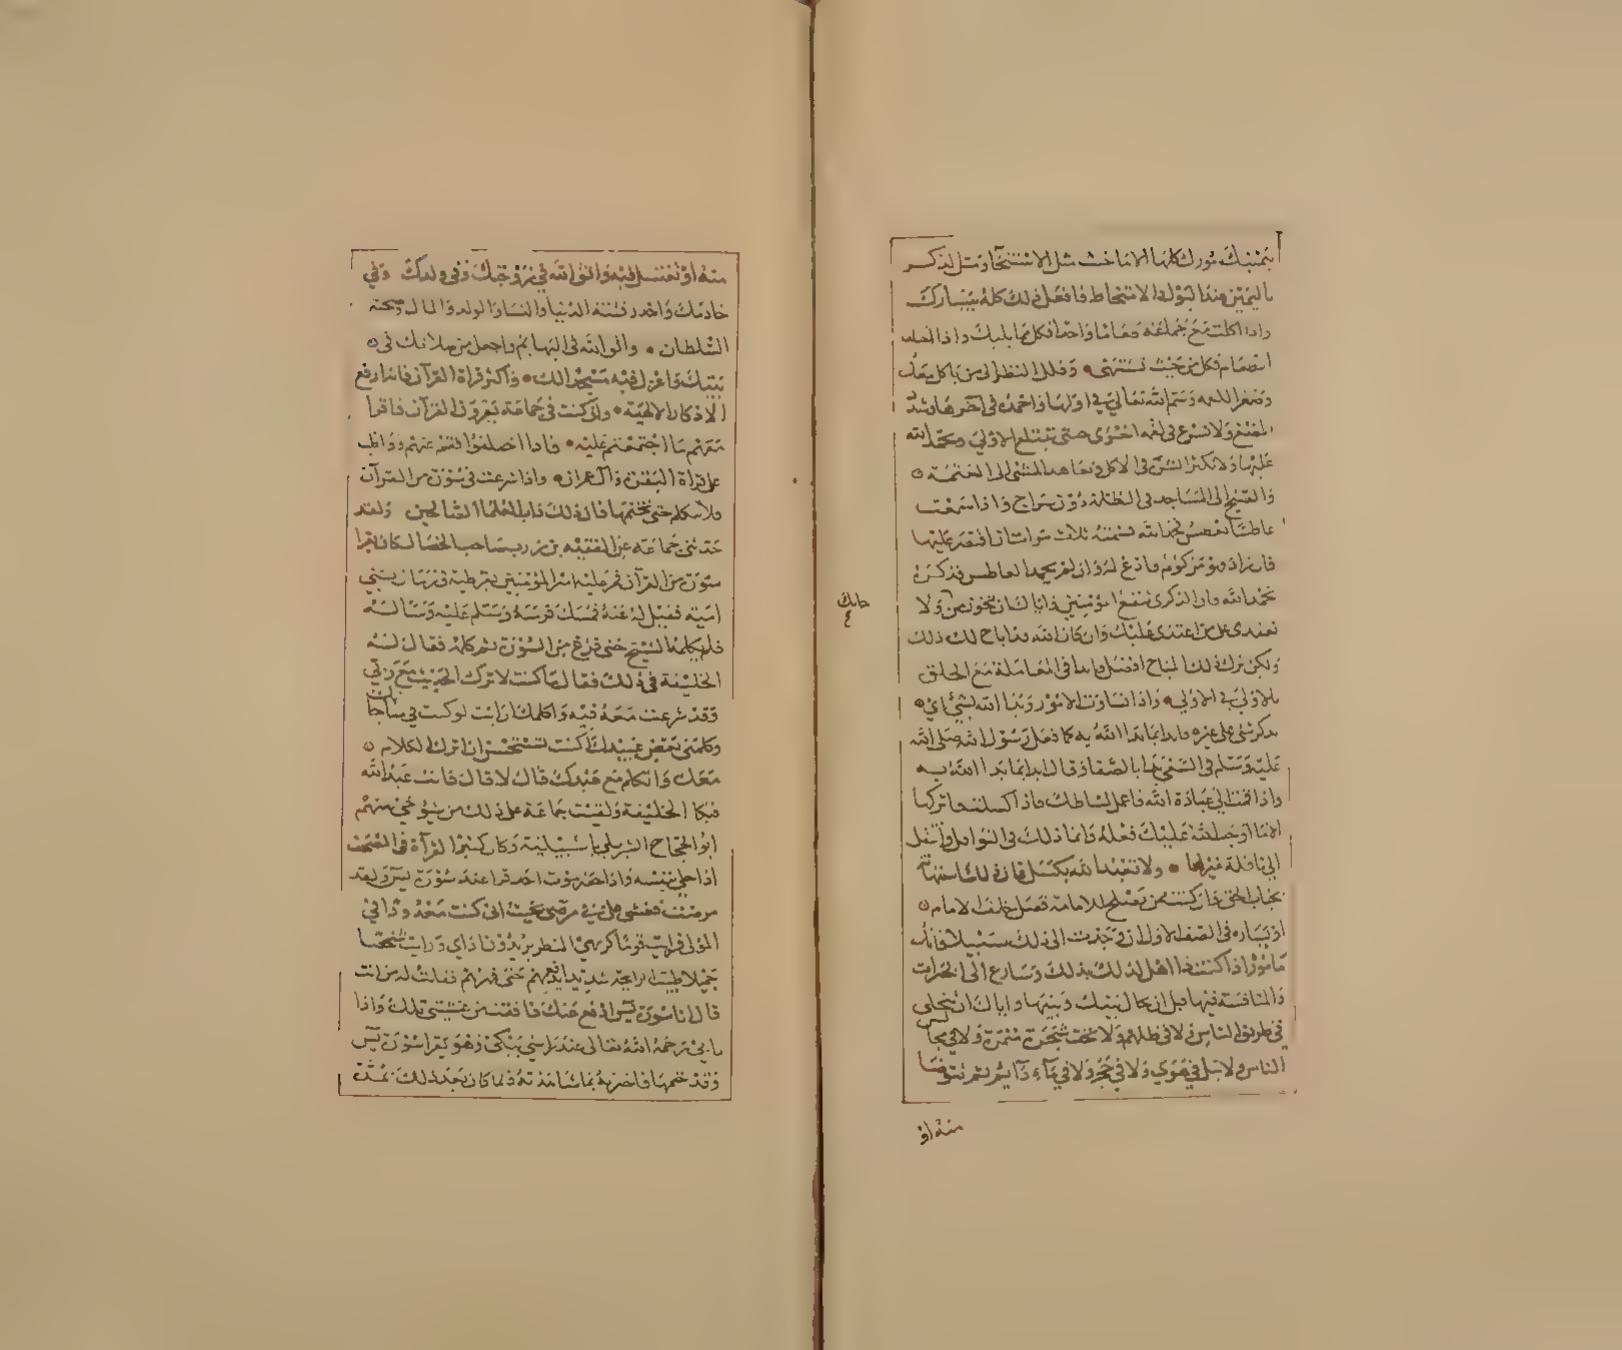 بيمينك مورك كلها الا ما خت مثل الاستنجا ومثل الذكر
باليمين عند البول والامتخاط فافعل ذلك كله بيسارك
واذا اكلت مع جماعة طعاما واحدا فكل مما يليك واذا
الطعام فكل من حيث تشتهي وقلل النظر الى من ياكل معك
وصغر اللقمة وسم الله تعالى في اولها واحمده في اخرها وشد
المضغ ولا تسرع في لقمة اخرى حتى تبتلع الاولى وتحمد الله
عليها ولا تكثر الشره في الاكل وتعاهد المشي الى العتمة
والصبح الى المساجد في الظلمة دون سراج واذا سمعت
عاطسا يعطس فحمد الله فشمته ثلاث مرات فان زاد عليها
فان زاد فهو مزكوم فادع له وان لم يحمد العاطس فذكره
بحمد الله فان الذكرى تنفع المؤمنين واياك ان تخون من ولا
تعتدي على من اعتدى عليك وان كان الله قد اباح لك ذلك
ولكن ترك ذلك المباح افضل وابدا في المعاملة مع الخلق
بالاولى فالاولى واذا تساوت الامور وبدا الله بشيء اي
بذكر شيء على غيره فابدا بما بدا الله به كما فعل رسول الله صلى الله
عليه وسلم في السعي بدا بالصفا وقال ابدا بما بدا الله به
واذا قمت الى عبادة الله فاعمل نشاطك فاذا كسلت فاتركها
الا ما اوجب الله عليك فعله وانما ذلك في النوافل وانتقل
الى نافلة غيرها ولا تعبد الله بكسل فان ذلك استهانة
بجناب الحق فان كنت ممن يصلح للامامة فصل خلف الامام
او يساره في الصف الاول ان وجدت الى ذلك سبيلا فانك
مامور اذا كنت اهلا لذلك بذلك وسارع الى الخيرات
والمنافسة فيها قبل ان يحال بينك وبينها واياك ان تتخلى
في طريق الناس ولا في ظلهم ولا تحت شجرة مثمرة ولا في مجالس
الناس ولا تبل في هوى ولا في جحر ولا في ماء دائم ثم تتوضا
منه او
منه او تغتسل فيه واتق الله في زوجتك وفي ولدك وفي
خادمك واحذر فتنة الدنيا والنسا والولد والمال وصحبة
السلطان واتق الله في البهائم واجعل من صلاتك في
بيتك واعزل فيه مسجدا لك واكثر قراة القرآن فانه ارفع
الاذكار الالهية وان كنت في جماعة يقرون القرآن فاقرا
معهم ما اجتمعتم عليه فاذا اختلفوا فقم عنهم وواظب
على قراة البقرة وآل عمران واذا شرعت في سورة من القرآن
فلا تتكلم حتى تختمها فان ذلك داب العلماء الصالحين ولقد
حدثني جماعة عن الفقيه بن زرب صاحب الخصال كان يقرا
سورة من القرآن فمر عليه امير المؤمنين بقرطبة في زمان بني
امية فقيل له عنه فمسك فرسه وسلم عليه وساله
فلم يكلمه الشيخ حتى فرغ من السورة ثم كلمه فقال له
الخليفة في ذلك فقال ما كنت لاترك الحديث مع ربي
وقد شرعت معه فيه واكلمك ارايت لو كنت في مناجاتك
وكلمني بعض عبيدك اكنت تستحسن ان اترك الكلام
معك واتكلم مع عبدك قال لا قال فانت عبد الله
فبكا الخليفة ولقيت جماعة على ذلك من شيوخي منهم
ابو الحجاج الشبربلي باشبيلية وكان كثير القرآة في المصحف
اذا خلى بنفسه واذا حضر موت احد قرا عنده سورة يس ولقد
مرضت فغشي علي في مرضي بحيث اني كنت معدودا في
الموتى فرايت قوما كريهي المنظر يريدون اذاي ورايت شخصا
جميلا طيب الرايحة شديدا يدفعهم حتى قهرهم فقلت له من انت
قال انا سورة يس ادفع عنك فافقت من غشيتي تلك واذا
بابي رحمه الله تعالى عند راسي يبكي وهو يقرا سورة يس
وقد ختمها فاخبرته بما شاهدته